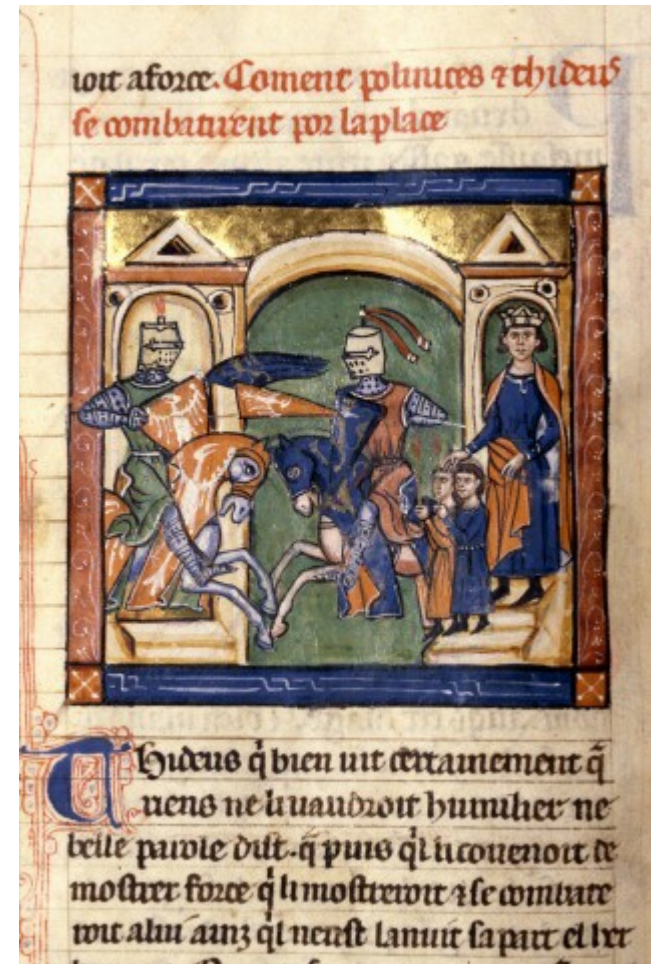 roit a force. Coment polinices ⁊ thideus
se combatirent por la place
Thideus q̃ bien uit certainement q̃
riens ne li uaudroit humilier ne
belle parole dist. q̃ puis q̉l li couenoit de
mostrer force q̉ li mostreroit ⁊ se combate
roit a lui ainz q̉l neust la nuit sa part el